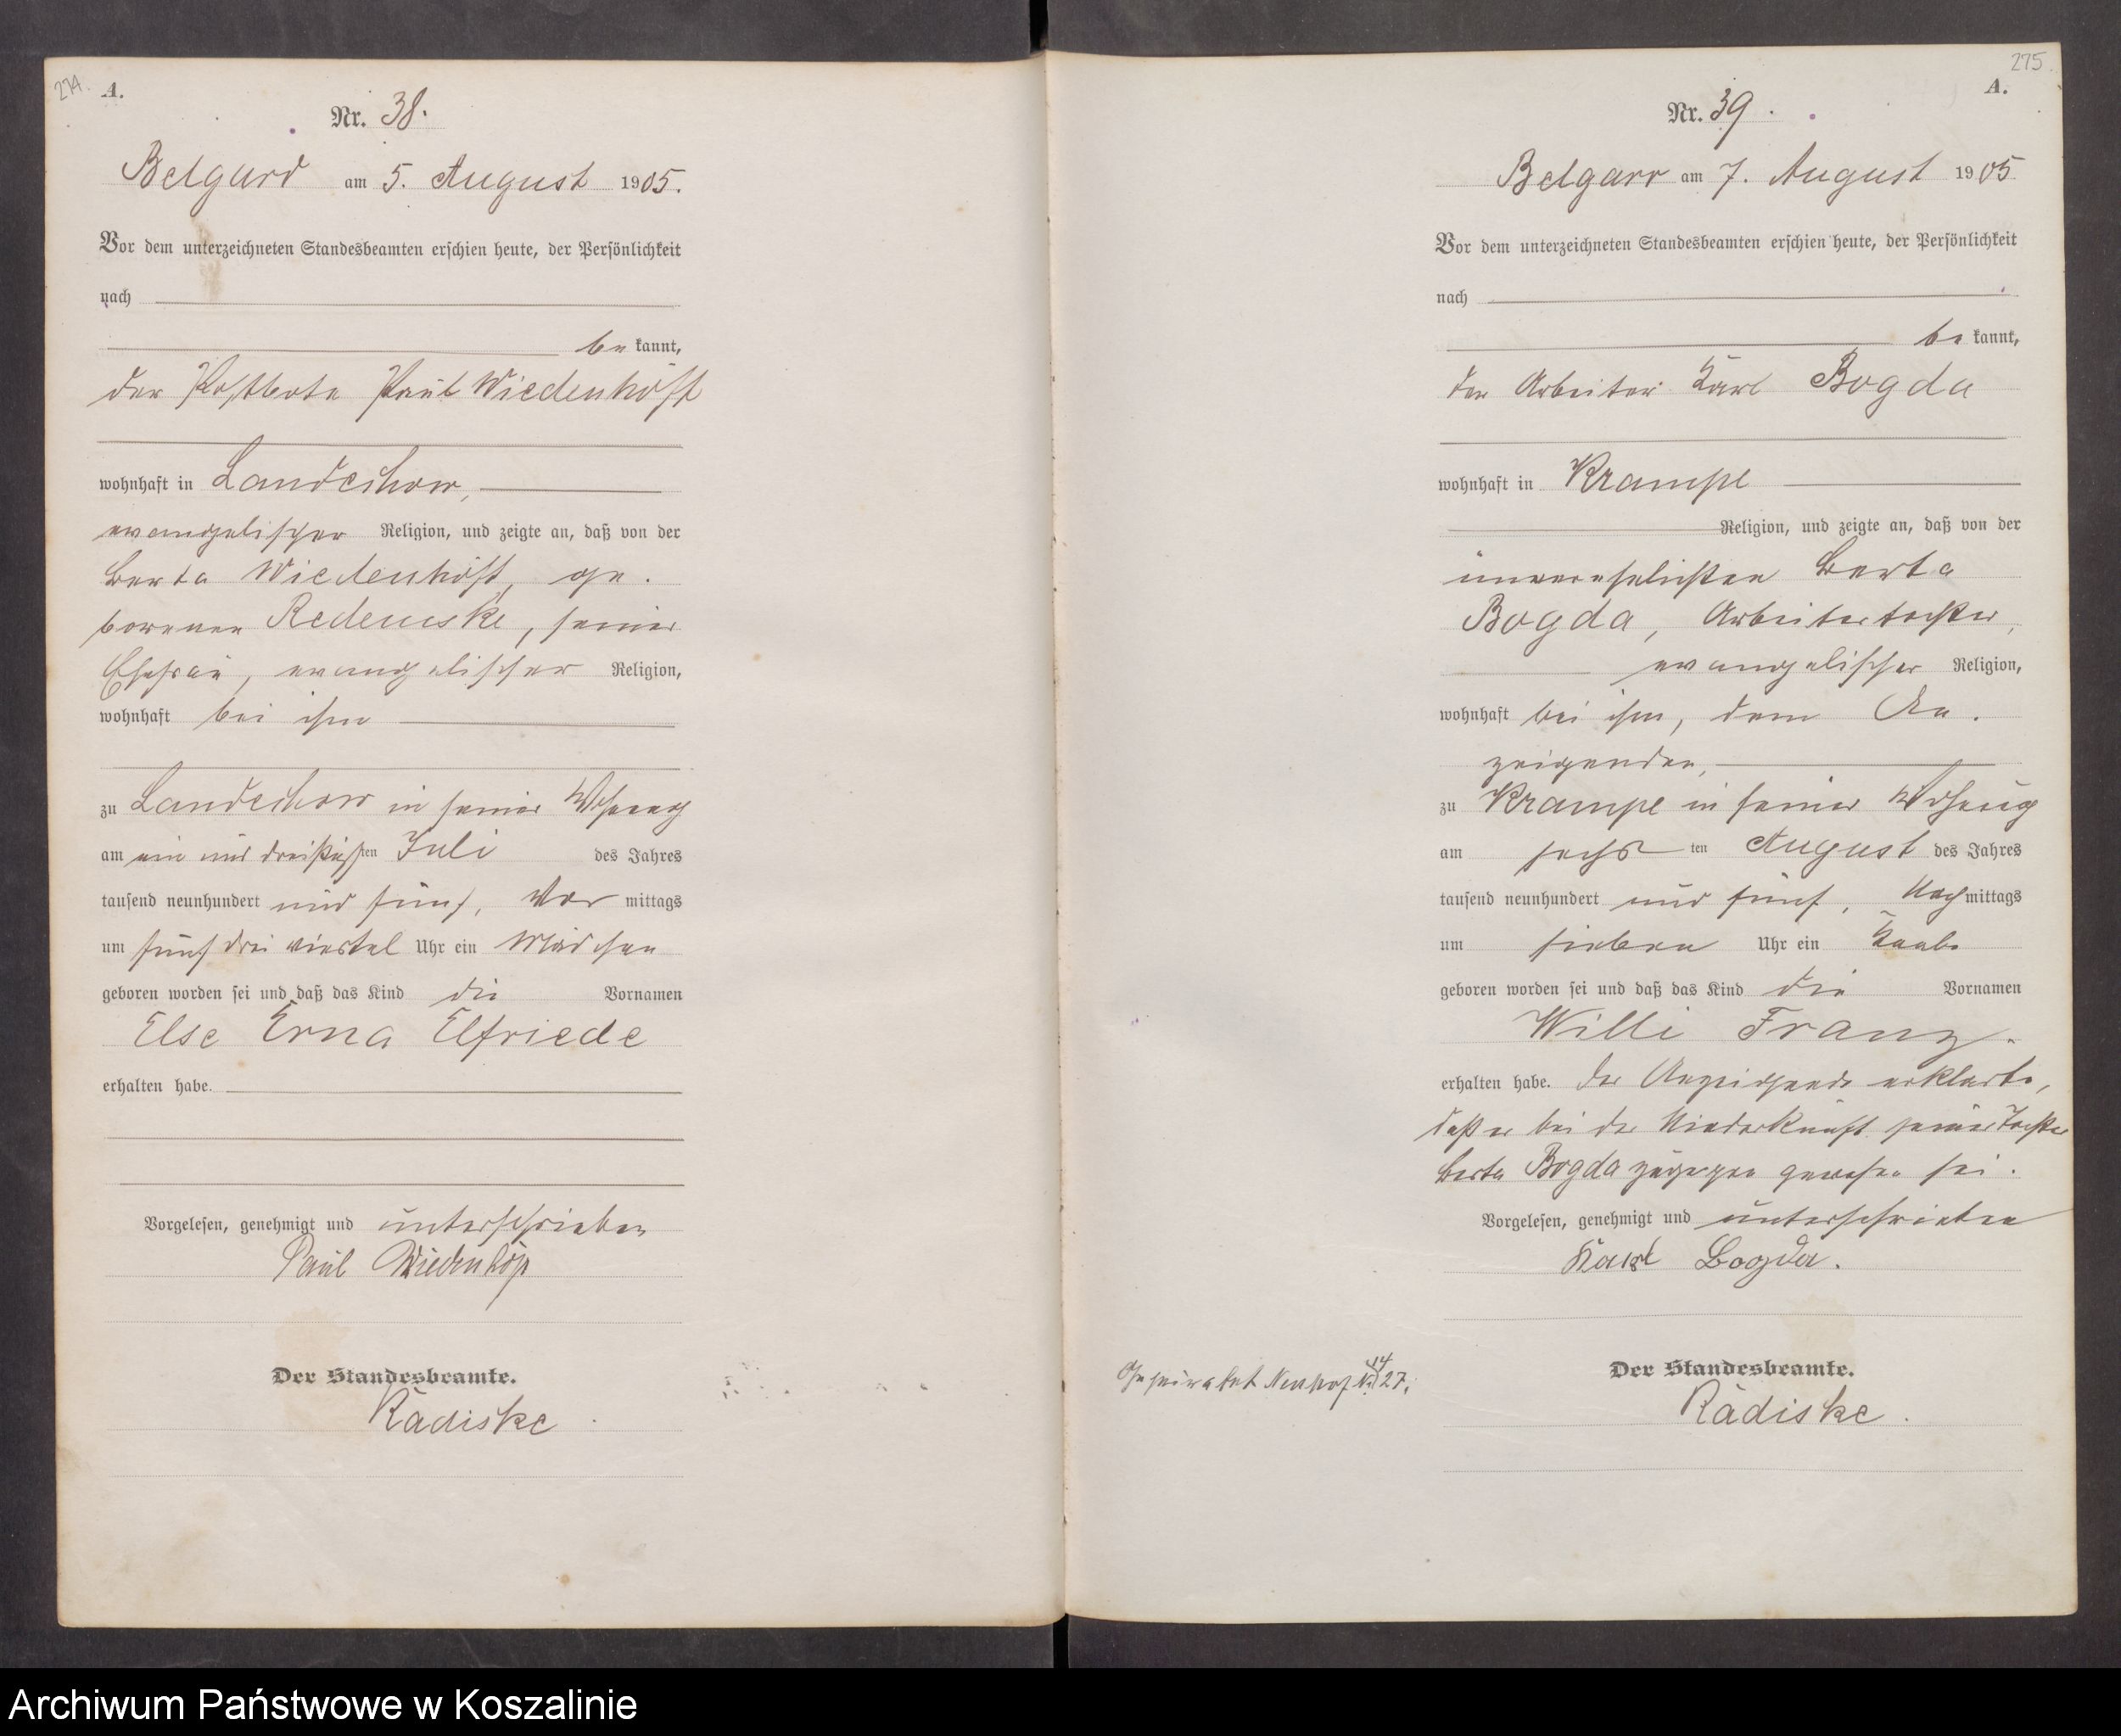 274.
A.
Nr. 38.
Belgard am 5. August 1905.
Vor dem unterzeichneten Standesbeamten erschien heute, der Persönlichkeit
nach
be kannt,
der Postbote Paul Wiedenhöft
wohnhaft in Landechow,
evangelischer Religion, und zeigte an, daß von der
Berta Wiedenhöft, ge.
borenen, seiner
Ehefrau, evangelischer Religion,
wohnhaft bei ihm
zu Landechow in seiner Wohnung
am ein und dreißigsten Juli des Jahres
tausend neunhundert und fünf, Vor mittags
um fünf drei viertel Uhr ein Mädchen
geboren worden sei und daß das Kind die Vornamen
Else Erna Elfriede
erhalten habe.
Vorgelesen, genehmigt und unterschrieben
Paul Wiedenhöft
Der Standesbeamte.
Rådiske
275.
A.
Nr. 39.
Belgard am 7. August 1905
Vor dem unterzeichneten Standesbeamten erschien heute, der Persönlichkeit
nach
be kannt,
der Arbeiter Karl Bogda
wohnhaft in Krampe
Religion, und zeigte an, daß von der
unverehelichten Berta
Bogda, Arbeitertochter,
evangelischer Religion,
wohnhaft bei ihm, dem An.
zeigenden,
zu Krampe in seiner Wohnung
am sechsten August des Jahres
tausend neunhundert und fünf, Nachmittags
um sieben Uhr ein Knabe
geboren worden sei und daß das Kind die Vornamen
Willi Franz.
erhalten habe. Der Anzeigende erklärte,
daß er bei der Niederkunft seiner Tochter
Berta Bogda zugegen gewesen sei.
Vorgelesen, genehmigt und unterschrieben
Karl Bogda.
Geheiratet Neuhof Nr 14/27.
Der Standesbeamte.
Rådiske.
Archiwum Państwowe w Koszalinie